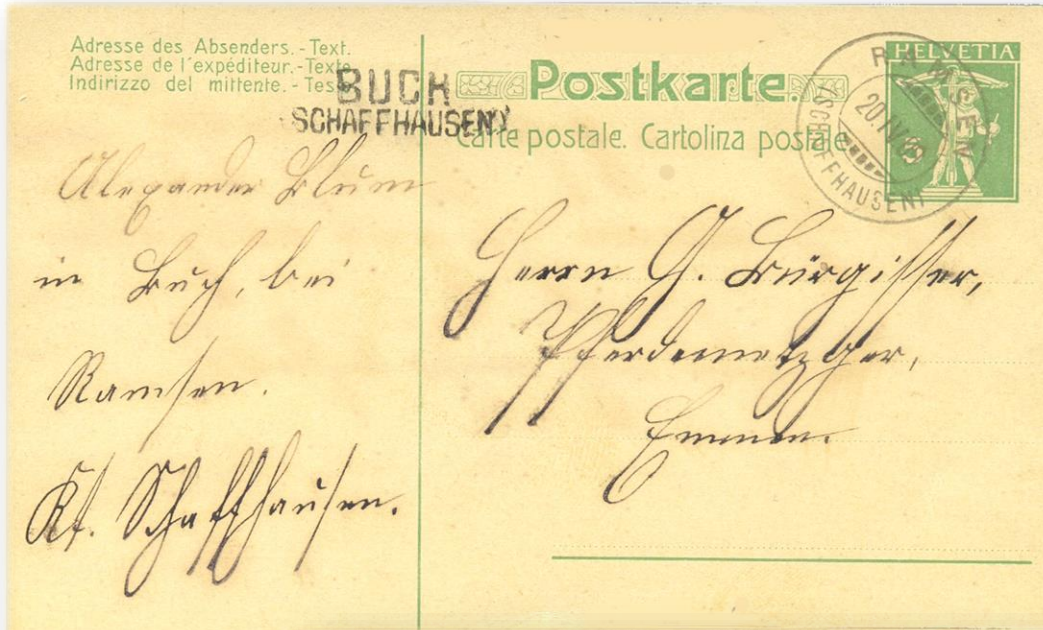 Adresse des Absenders.-Text.
Adresse de l'expéditeur.-Texte
Indirizzo del mittente.-Tes
BUCH
(SCHAFFHAUSEN)
Postkarte.
Carte postale. Cartolina postale
HELVETIA
RAMSEN
20.IV
(SCHAFFHAUSEN)
Alexander Blum
in Buch, bei
Ramsen.
Kt. Schaffhausen.
Herrn G. Bürgisser,
Pferdemetzger,
Emmen.